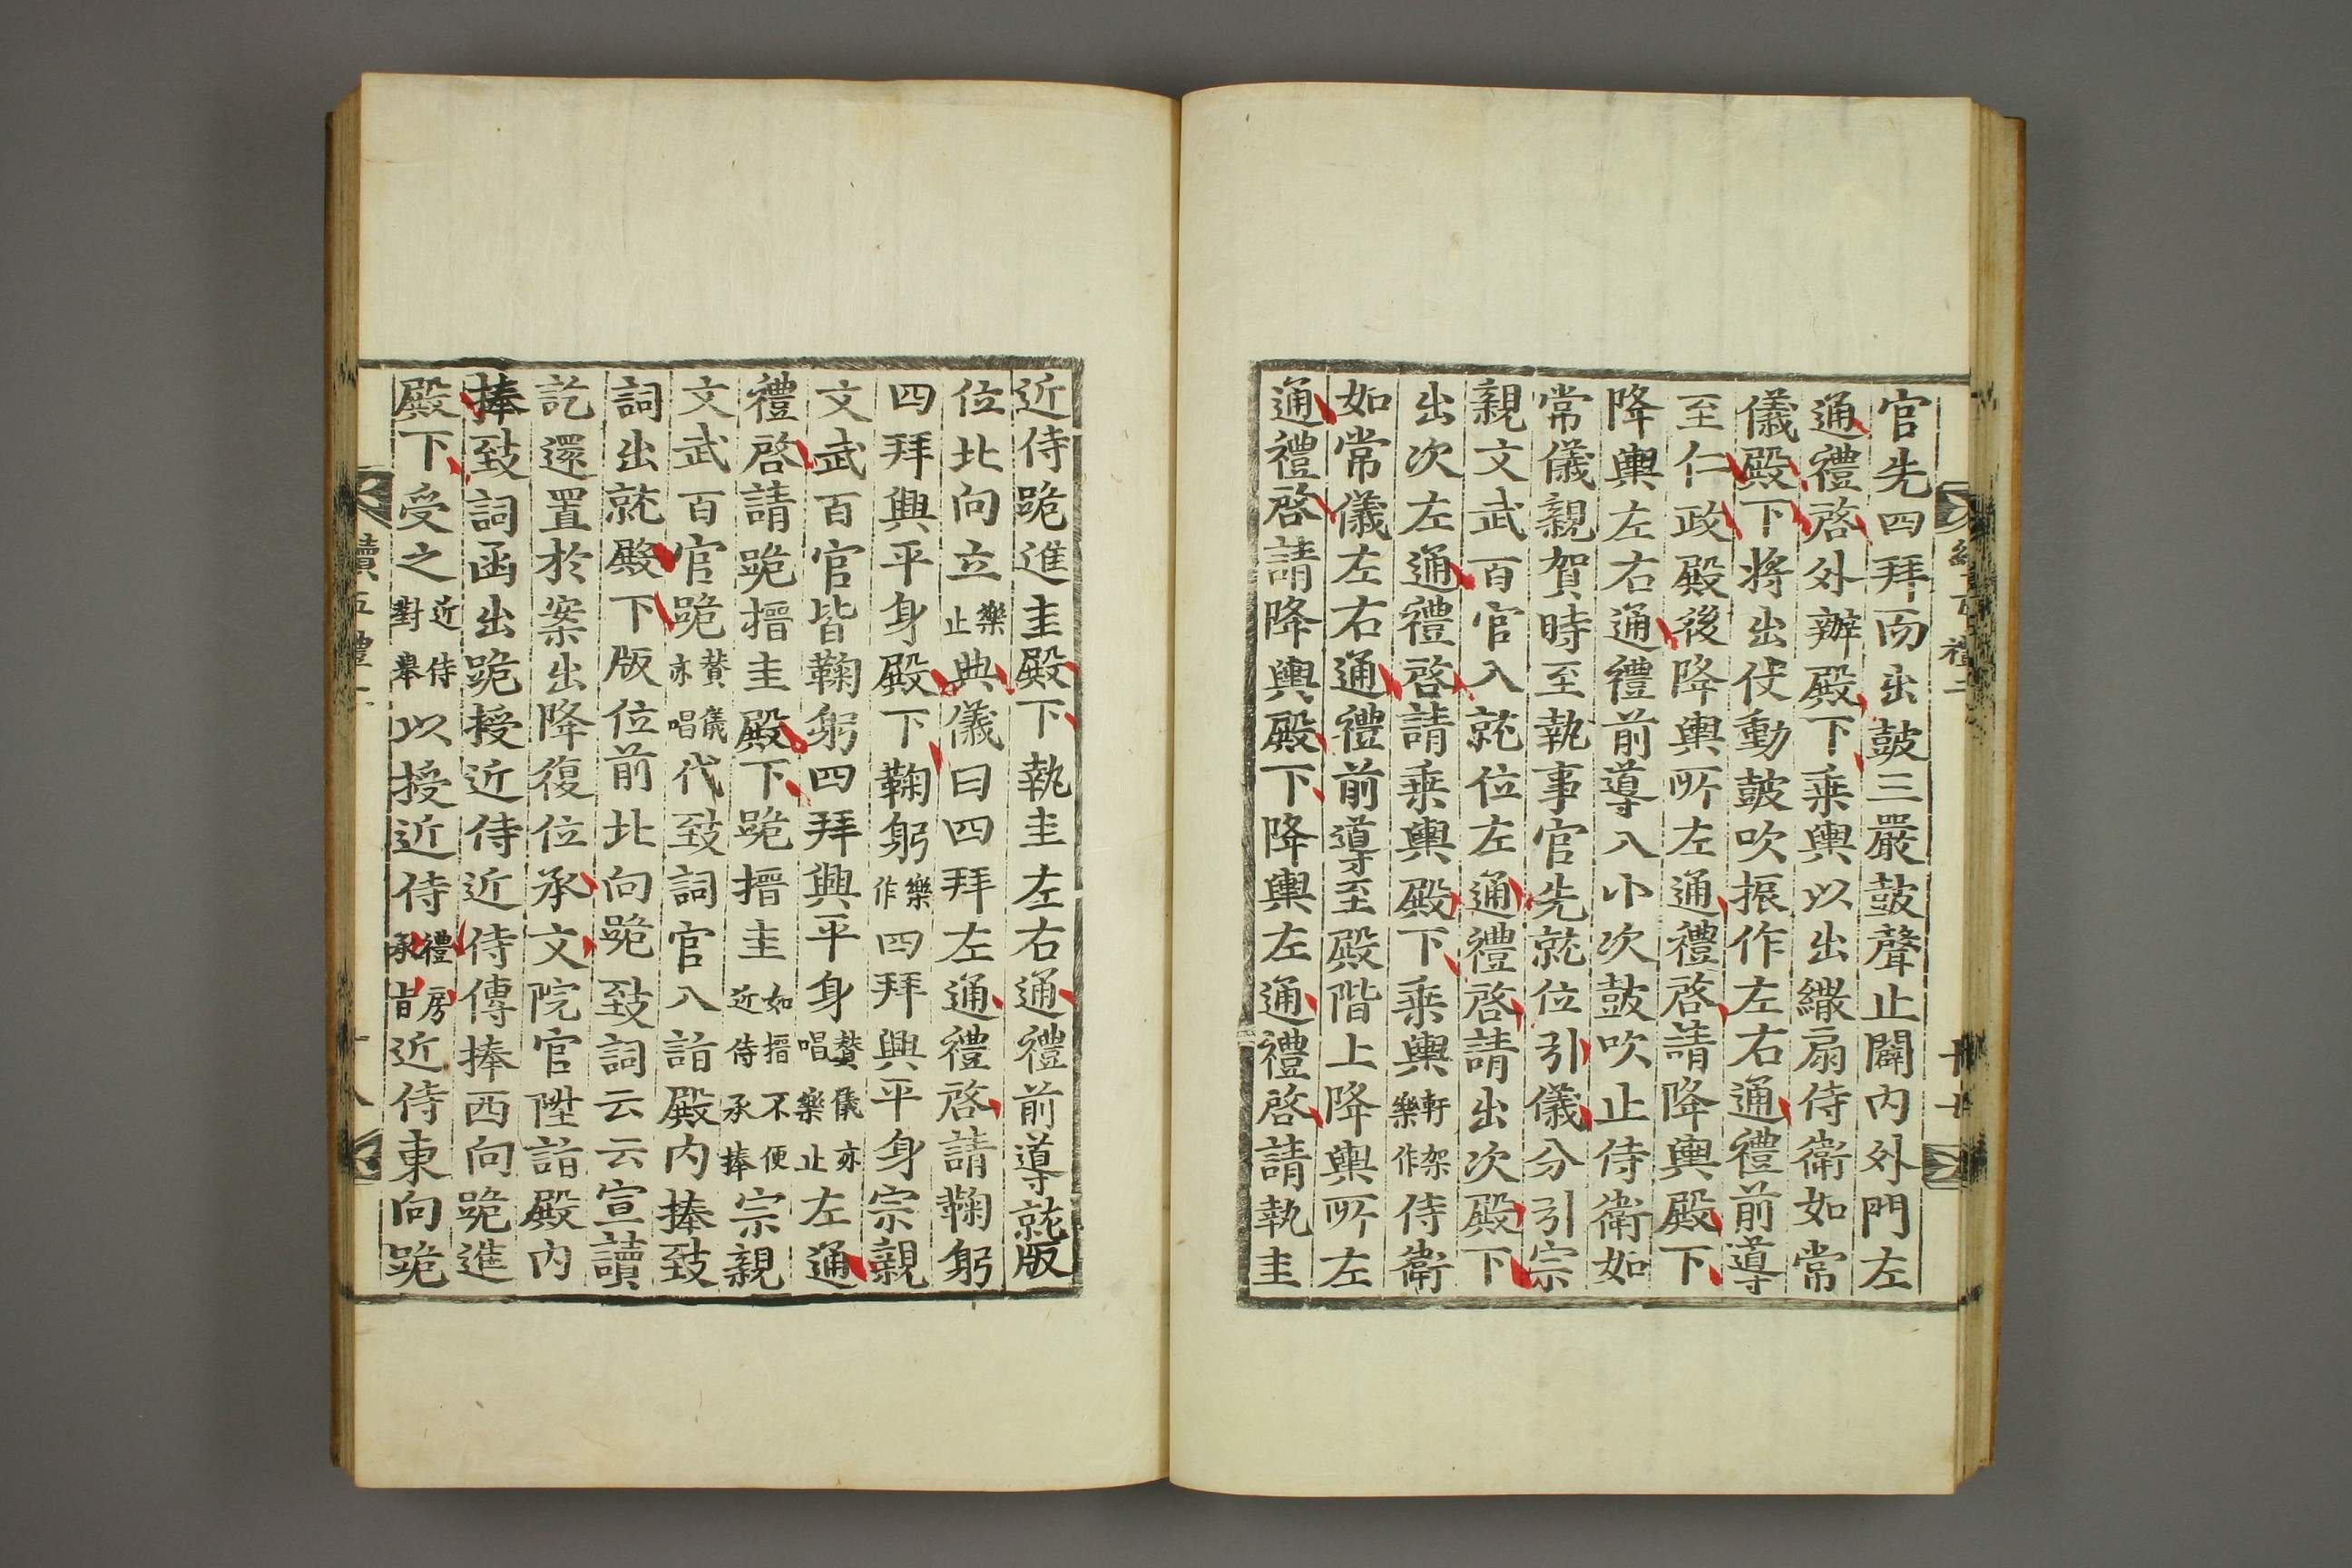 官先四拜而出鼓三嚴鼓聲止闢內外門左
通禮啓外辦殿下乘輿以出繖扇侍衛如常
儀殿下將出仗動鼓吹振作左右通禮前導
至仁政殿後降輿所左通禮啓請降輿殿下
降輿左右通禮前導入小次鼓吹止侍衛如
常儀親賀時至執事官先就位引儀分引宗
親文武百官入就位左通禮啓請出次殿下
出次左通禮啓請乘輿殿下乘輿軒架樂作侍衛
如常儀左右通禮前導至殿階上降輿所左
通禮啓請降輿殿下降輿左通禮啓請執圭
近侍跪進圭殿下執圭左右通禮前導就版
位北向立樂止典儀曰四拜左通禮啓請鞠躬
四拜興平身殿下鞠躬樂作四拜興平身宗親
文武百官皆鞠躬四拜興平身贊儀亦唱樂止左通
禮啓請跪搢圭殿下跪搢圭如搢不便近侍承捧宗親
文武百官跪贊儀亦唱代致詞官入詣殿內捧致
詞出就殿下版位前北向跪致詞云云宣讀
訖還置於案出降復位承文院官陞詣殿內
捧致詞函出跪授近侍近侍傳捧西向跪進
殿下受之近侍對舉以授近侍禮房承旨近侍東向跪